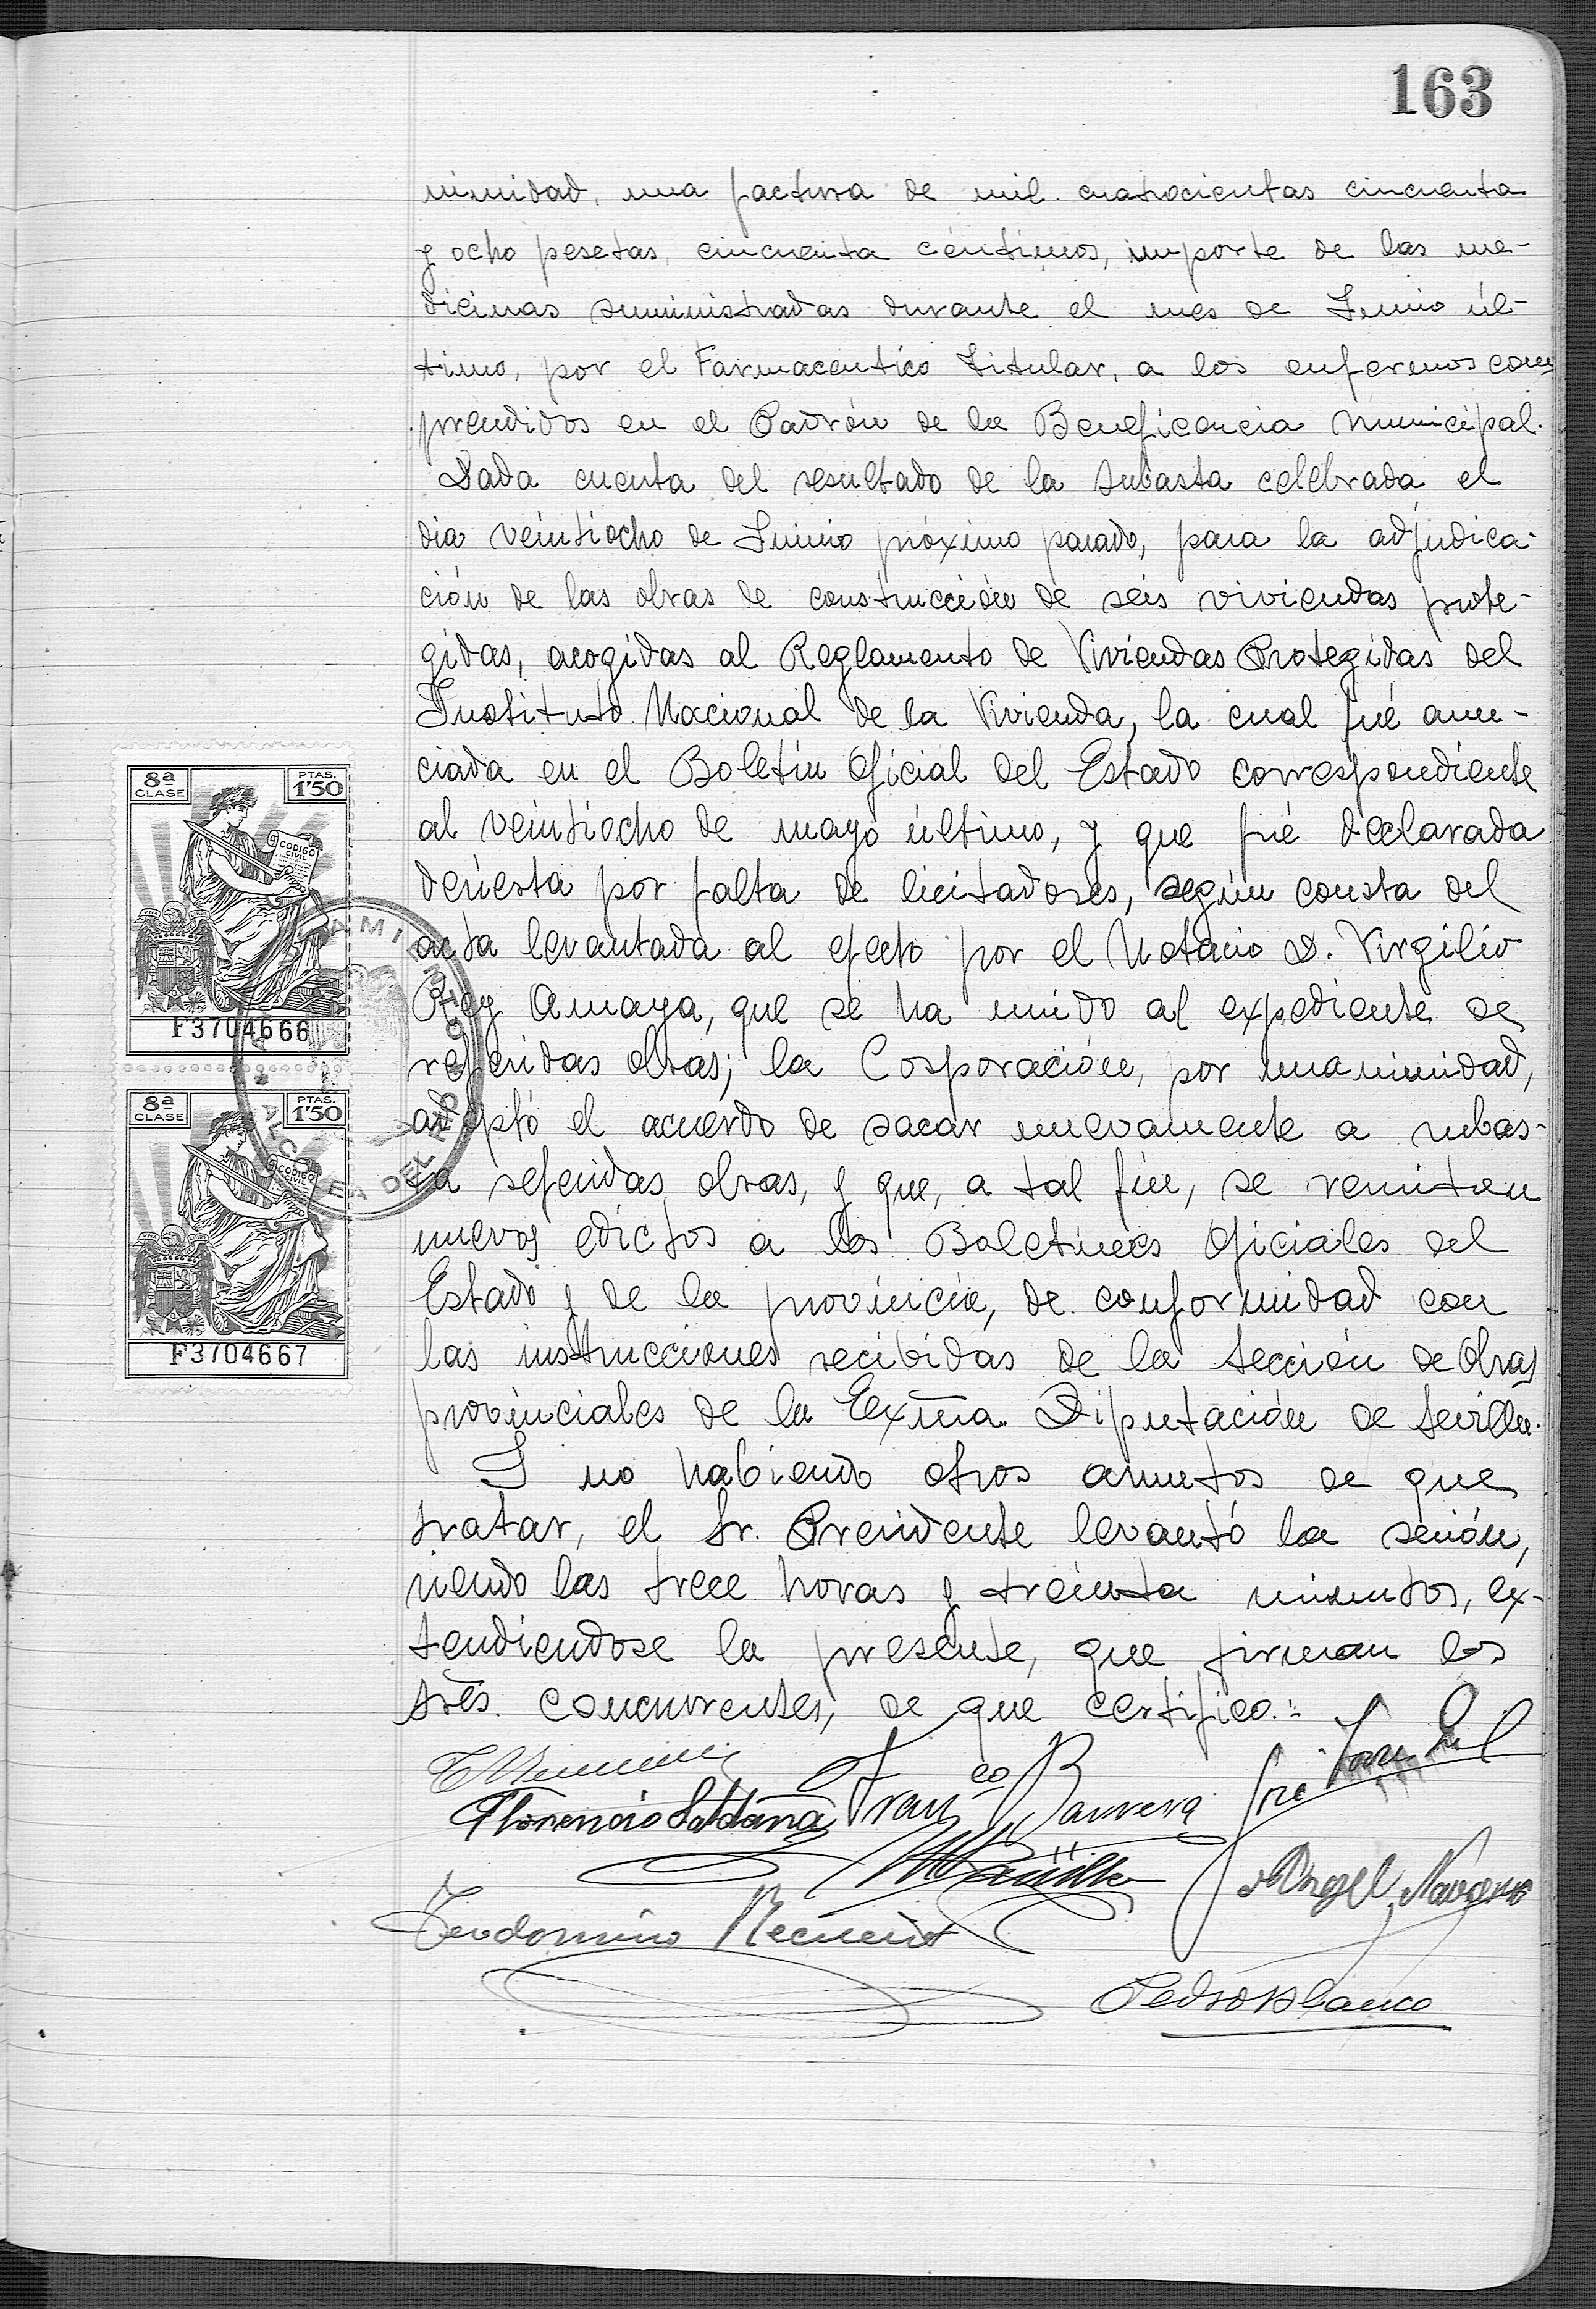 163
nimidad, una factura de mil cuatrocientas cincuenta
y ocho pesetas cincuenta céntimos, importe de las me-
dicinas suministradas durante el mes de Junio úl-
timo, por el Farmaceutico Titular, a los enfermos com
prendidos en el Padrón de la Beneficencia Municipal.
Dada cuenta del resultado de la subasta celebrada el
dia veintiocho de Junio próximo pasado, para la adjudica-
ción de las obras de construcción de seis viviendas prote-
gidas, acogidas al Reglamento de Viviendas Protegidas del
Instituto Nacional de la Vivienda, la cual fué anun-
ciada en el Boletin Oficial del Estado correspondiente
al veintiocho de mayo último, y que fué declarada
desierta por falta de licitadores, según consta del
acta levantada al efecto por el Notario D. Virgilio
Rey Amaya, que se ha unido al expediente de
referidas obras; la Corporación, por unanimidad,
adoptó el acuerdo de sacar nuevamente a subas-
ta referidas obras, y que, a tal fin, se remitan
nuevos edictos a los Boletines Oficiales del
Estado y de la provincia, de conformidad con
las instrucciones recibidas de la Sección de Obras
provinciales de la Exma Diputación de Sevilla.
Y no habiendo otros asuntos de que
tratar, el Sr. Presidente levantó la sesión,
siendo las trece horas y treinta minutos, ex-
tendiendose la presente, que firman los
sres. concurrentes, de que certifico.=
Florencio Saldaña Franco Barrera
Angel Navarro
Teodomiro Recuero
Pedro Blanco
8ª CLASE PTAS. 1'50
CODIGO CIVIL
F3704666
8ª CLASE PTAS. 1'50
CODIGO
F3704667